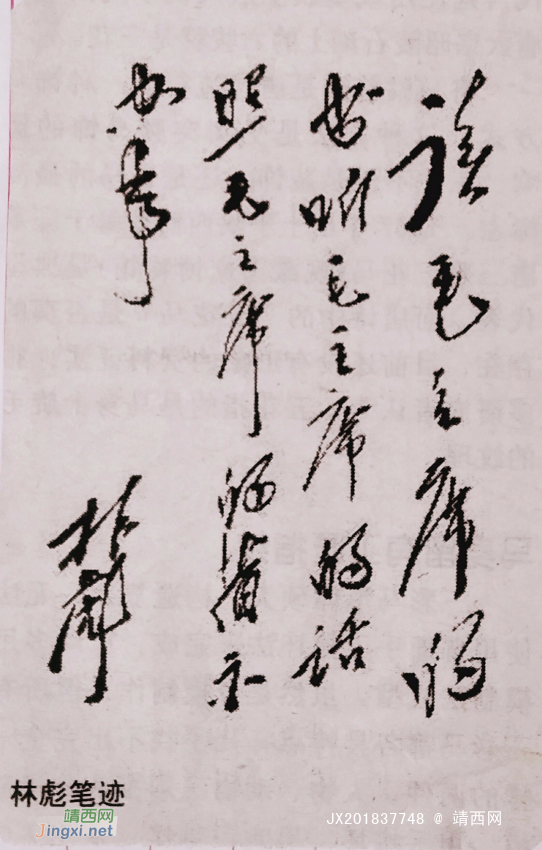 读毛主席的
书听毛主席的话
照毛主席的指示
办事
林彪
林彪笔迹
靖西网
Jingxi.net
JX201837748 @ 靖西网